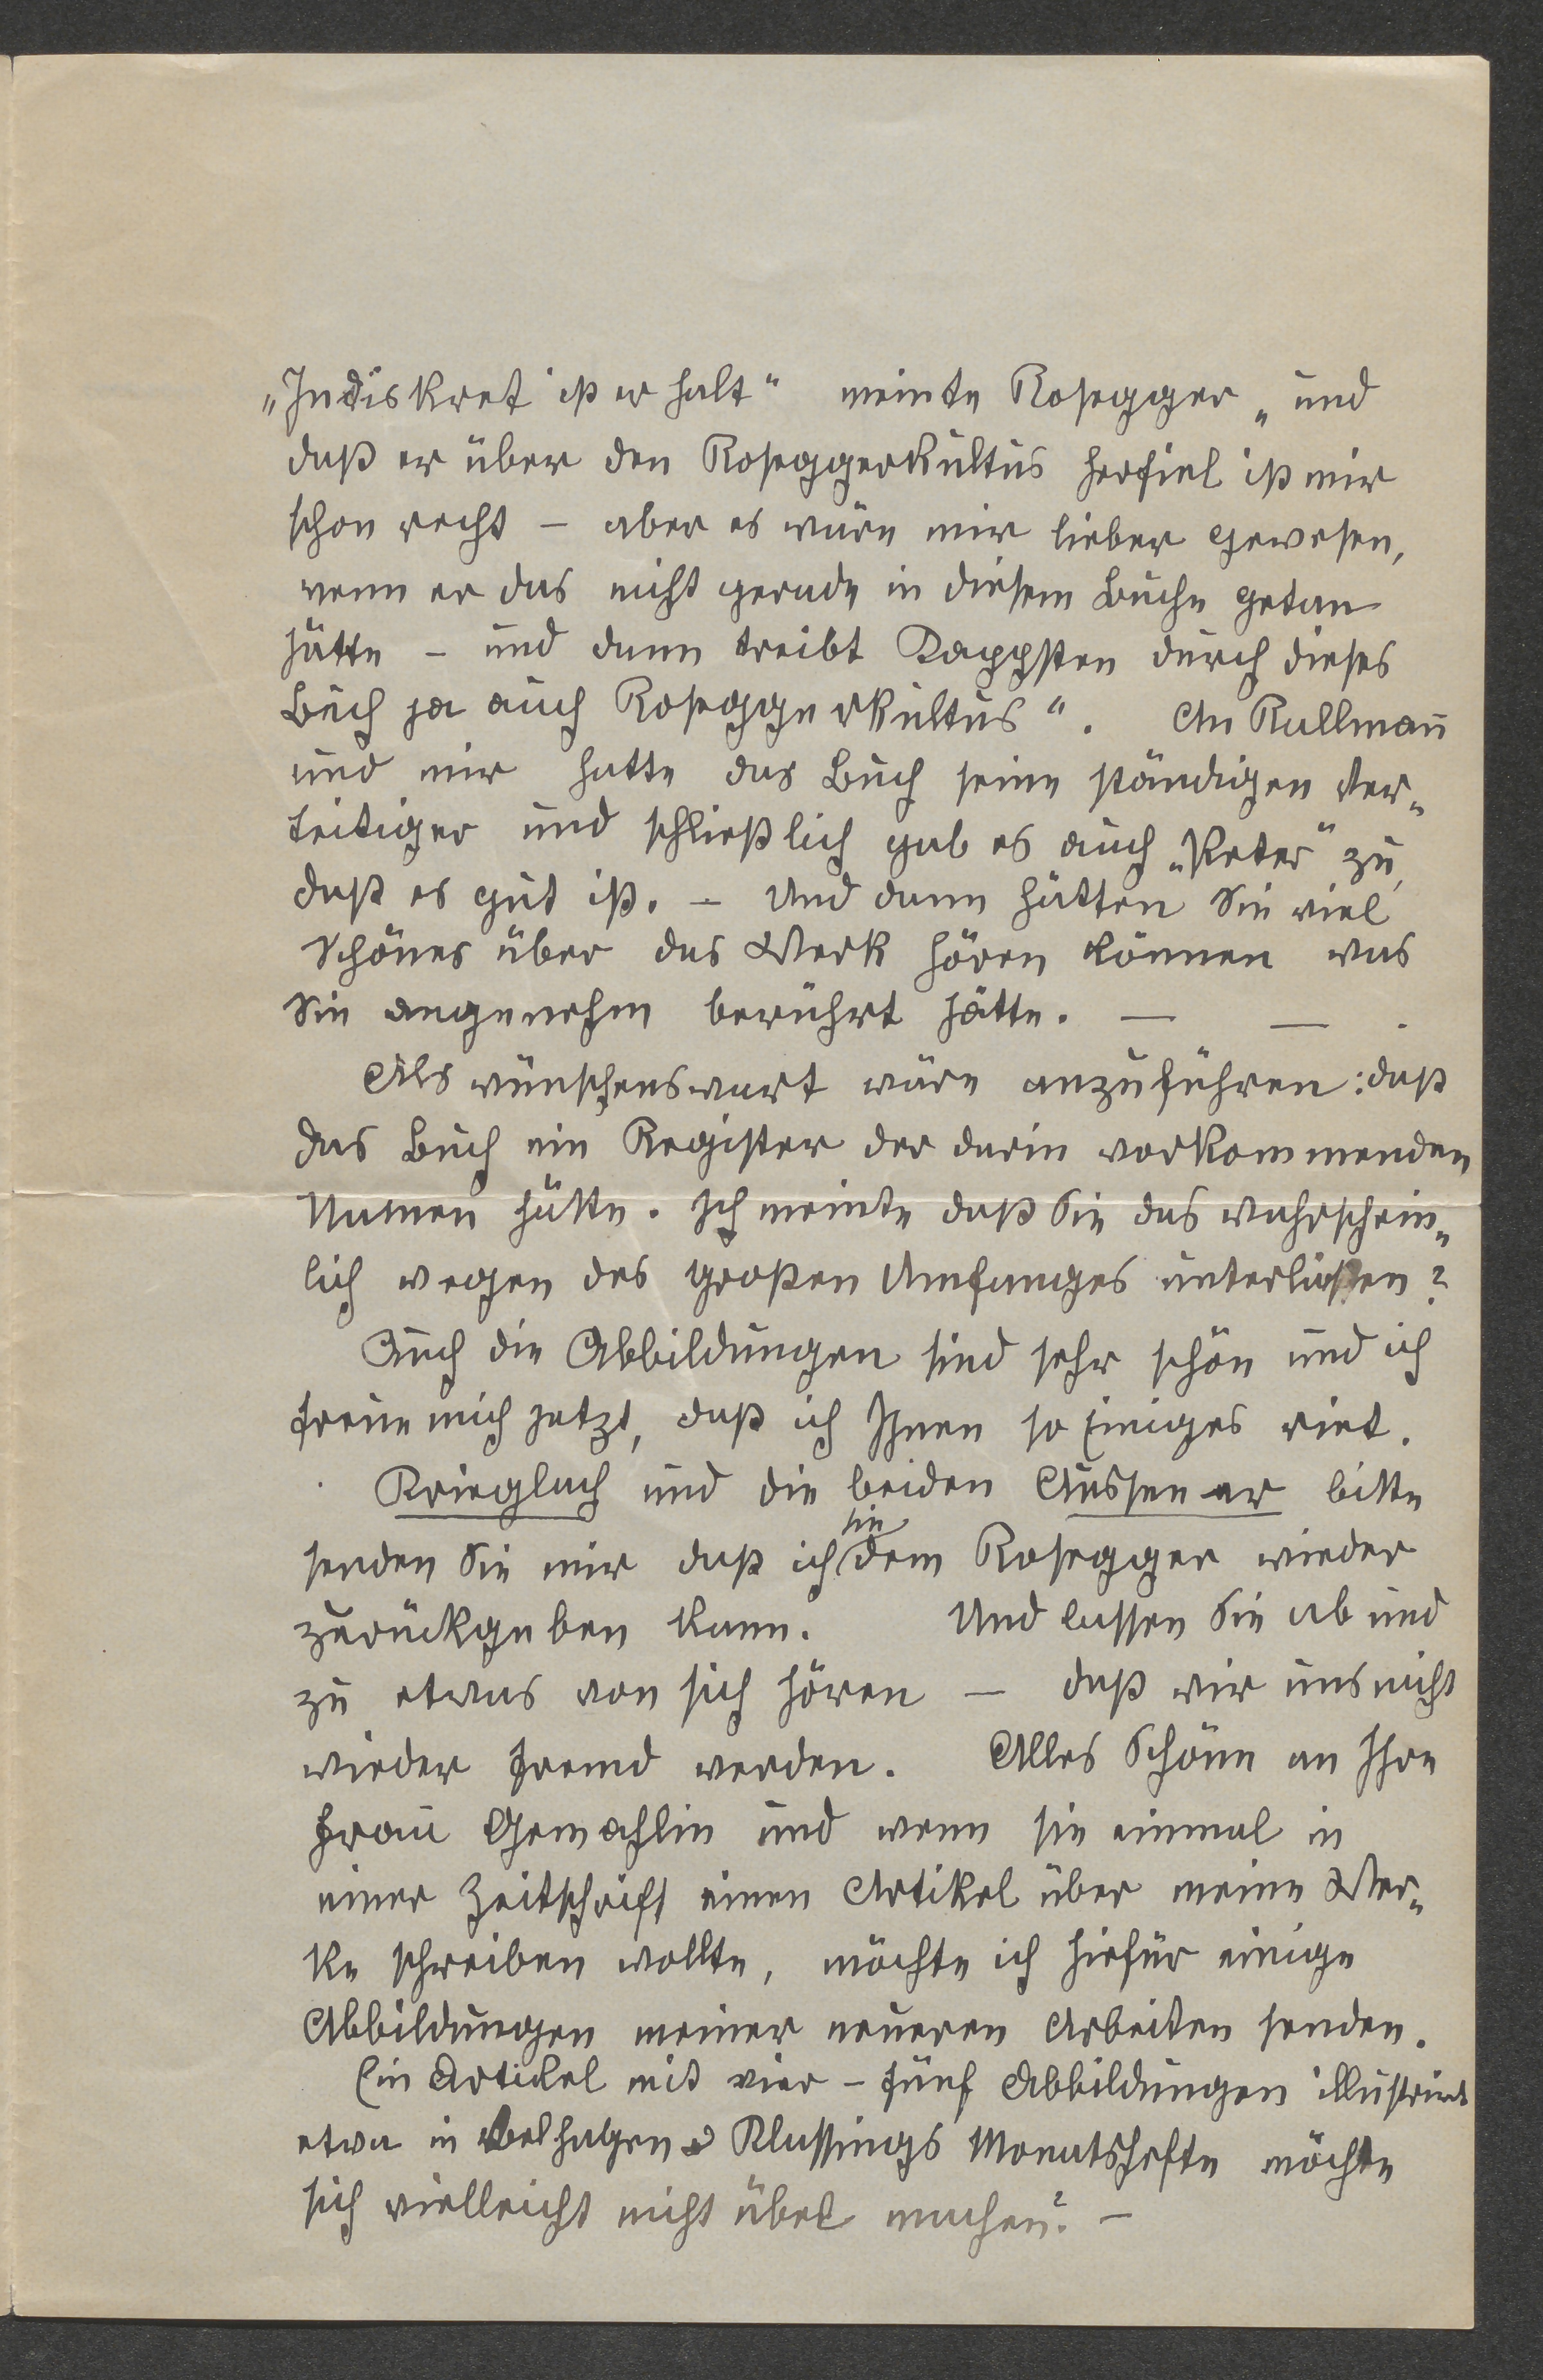 „Indiskret ist er halt“ meinte Rosegger „und
daß er über den Roseggerkultus herfiel ist mir
schon recht – aber es wäre mir lieber gewesen,
wenn er das nicht gerade in diesem Buche getan
hätte – und dann treibt Kappsten durch dieses
Buch ja auch Roseggerkultus“. An Kullman̄
und mir hatte das Buch seine ständigen Ver„
teitiger und schließlich gab es auch „Peter“ zu,
daß es gut ist. – Und dann hätten Sie viel
Schönes über das Werk hören können was
Sie angenehm berührt hätte. — —.
Als wünschenswert wäre anzuführen: daß
das Buch ein Register der darin vorkommenden
Namen hätte. Ich meinte daß Sie das wahrschein„
lich wegen des großen Umfanges unterließen?
Auch die Abbildungen sind sehr schön und ich
freue mich jetzt, daß ich Ihnen so Einiges riet.
Krieglach und die beiden Ausseer bitte
senden Sie mir daß ich sie dem Rosegger wieder
zurückgeben kann. Und lassen Sie ab und
zu etwas von sich hören – daß wir uns nicht
wieder fremd werden. Alles Schöne an Ihre
Frau Gemahlin und wenn sie einmal in
einer Zeitschrift einen Artikel über meine Wer„
ke schreiben wollte, möchte ich hiefür einige
Abbildungen meiner neueren Arbeiten senden.
Ein Artikel mit vier – fünf Abbildungen illustrirt
etwa in Velhagen & Klassings Monatshefte möchte
sich vielleicht nicht übel machen? –